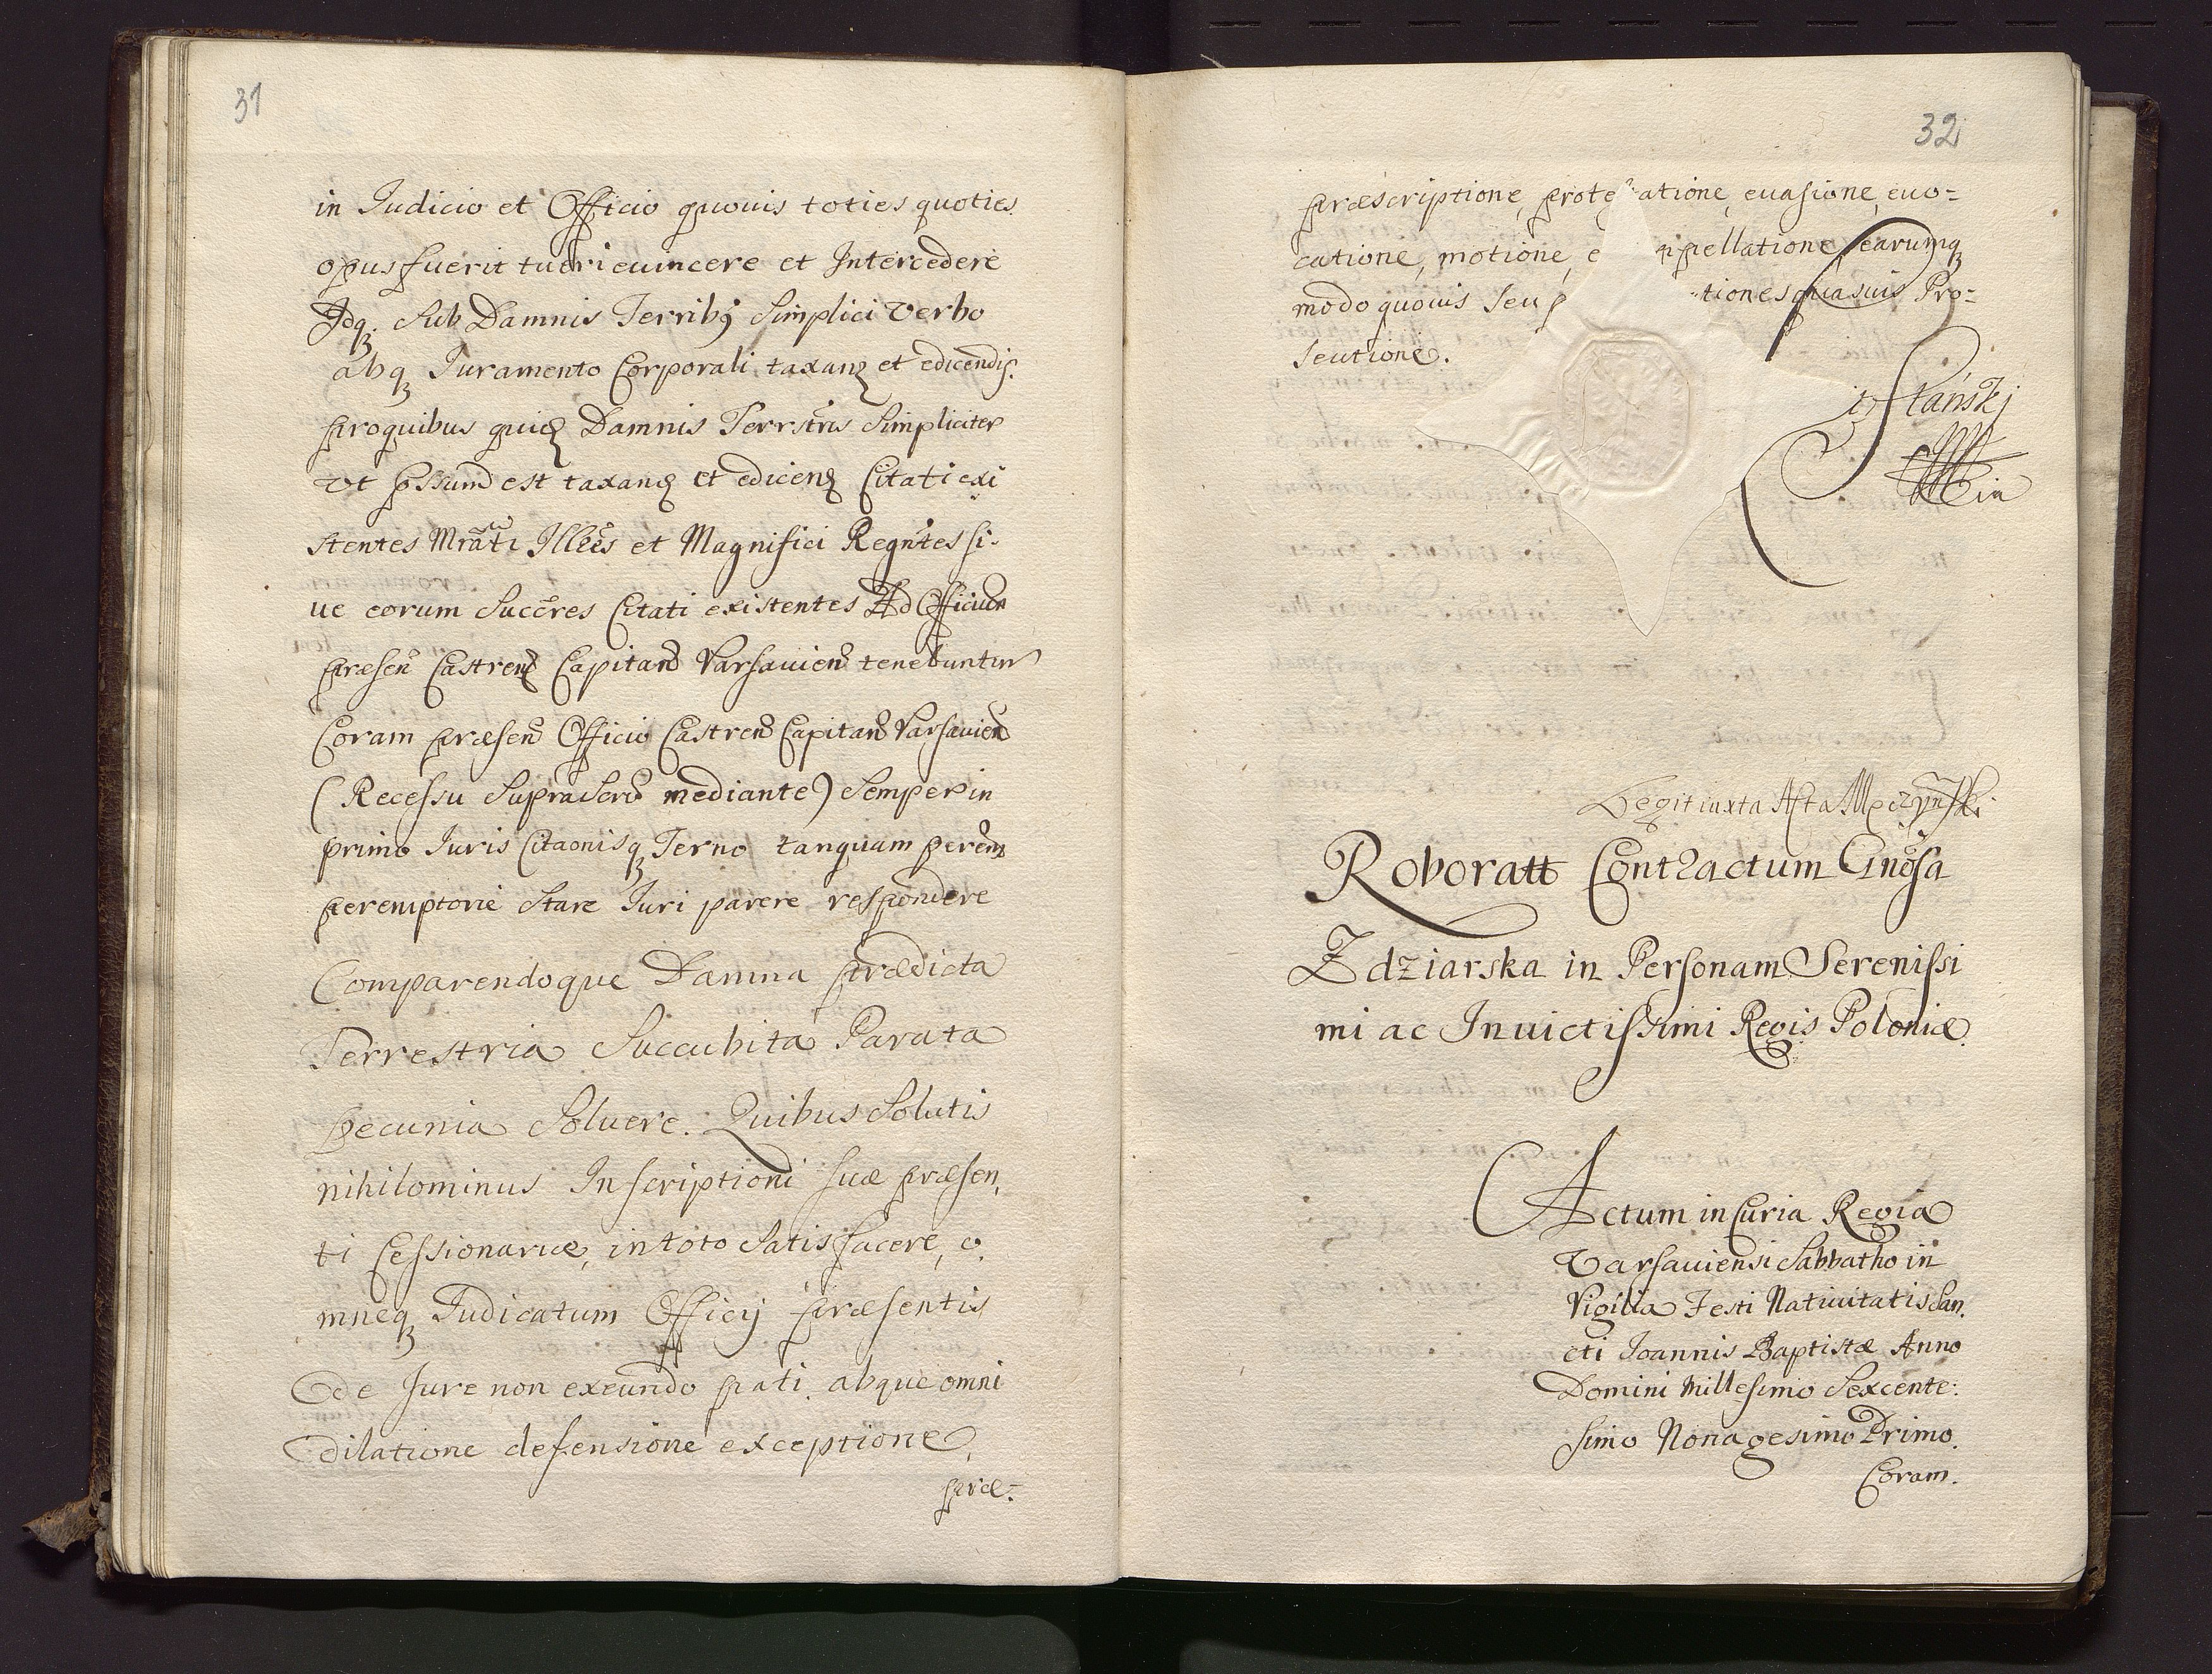 31
in Judicio et Officio quouis toties quoties
opus fuerit tueri euincere et Intercedere
Idq. sub Damnis Terrib9 Simplici verbo
absq Juramento Corporali taxan et edicendis.
pro quibus quid Damnis Terrstris Simpliciter
vt pssum est taxand et edicend Citati exi
stentes Mrāti Illres et Magnifici Regntes si-
ue eorum Succres Citati existentes Ad Officium
præsen Castren Capitan Varsauien tenebuntur
Coram præsen Officio Castren Capitan Varsauien
(Recessu Suprascro mediante) Semper in
primo Juris Citaonisq Terno tanquam perem
peremptorie Stare Juri parere respondere
Comparendoque Damna prædicta
Terrestria Succubita Parata
Pecunia Soluere. Quibus Solutis
nihilominus Inscriptioni suæ præsen,
ti Cessionariæ, in toto Satisfacere, o,
mneq Judicatum Officij præsentis
de Jure non exeundo pati. absque omni
dilatione defensione exceptione,
præ-
32
præscriptione, prote atione, euasione, euo=
catione, motione, e ppellatione, earumq
modo quouis seu p tiones quasuis Pro=
seutione.
Legit iuxta Acta Mączyński
Roboratt Contractum Gnosa
Zdziarska in Personam Serenissi
mi ac Inuictissimi Regis Poloniæ.
Actum in Curia Regia
Varsauiensi Sabbatho in
Vigilia Festi Natiuitatis San,
cti Joannis Baptistæ Anno
Domini Millesimo Sexcente:
simo Nonagesimo Primo.
Coram.